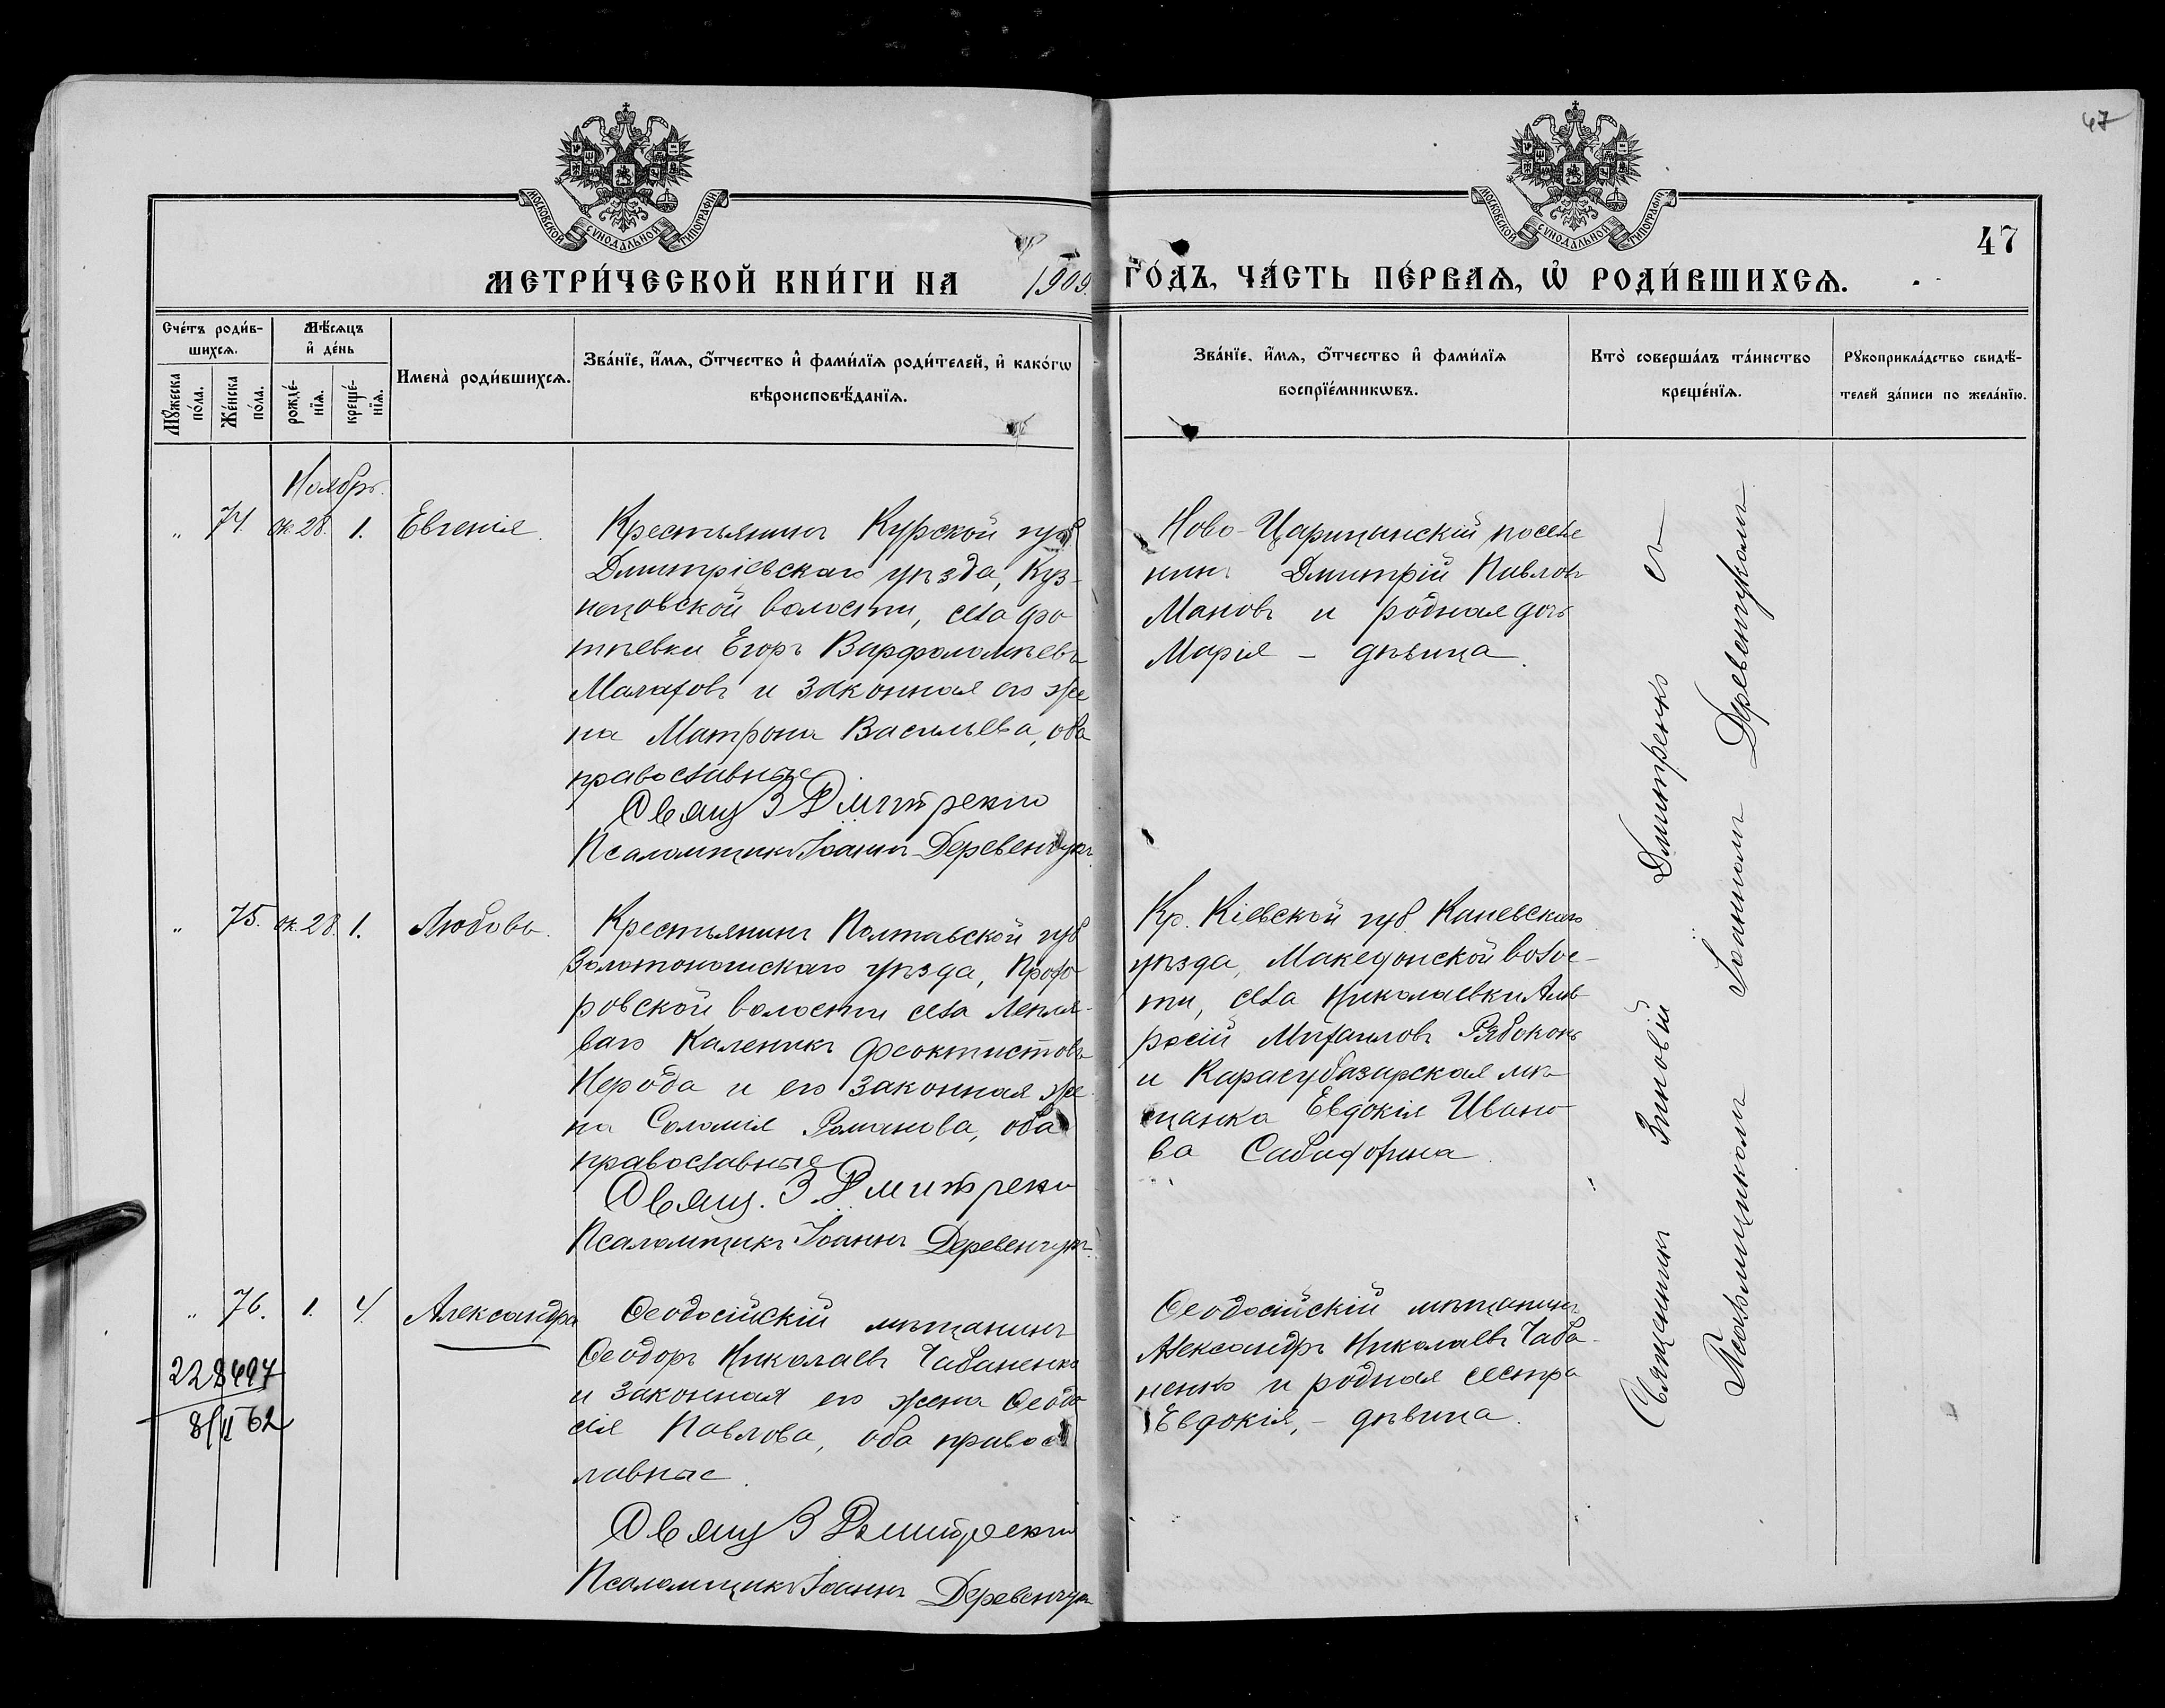 47
47
МОСКОВСКОЙ СѴНОДАЛЬНОЙ ТИПОГРАФІИ
МОСКОВСКОЙ СѴНОДАЛЬНОЙ ТИПОГРАФІИ
МЕТРИ́ЧЕСКОЙ КНИ́ГИ НА 1909. ГО́ДЪ, ЧА́СТЬ ПЕ́РВАѦ, Ѡ҆ РОДИ́ВШИХСѦ.
Сче́тъ роди́в-
шихсѧ.
Мꙋ́жеска
по́ла.
Же́нска
по́ла.
Мѣ́сѧцъ
и҆ де́нь
рожде́-
нїѧ.
креще́-
нїѧ.
Имена̀ роди́вшихсѧ.
Зва́нїе, и҆́мѧ, ѻ҆́тчество и҆ фами́лїѧ роди́телей, и҆ како́гѡ
вѣроисповѣ́данїѧ.
Зва́нїе, и҆́мѧ, ѻ҆́тчество и҆ фами́лїѧ
воспрїе́мникѡвъ.
Кто̀ соверша́лъ та́инство
креще́нїѧ.
Рꙋкоприкла́дство свидѣ́-
телей за́писи по жела́нїю.
Ноябрь.
" 74. ок. 28. 1. Евгенія.
Крестьянинъ Курской губ
Дмитріевскаго уѣзда, Куз-
нецовской волости, села Фо
тѣевки Егоръ Варфоломѣевъ
Малаховъ и законная его же
на Матрона Васильева, оба
православные
Свящ З Дмитренко
Псаломщикъ Іоаннъ Деревенчукъ
Ново-Царицынскій поселя
нинъ Дмитрій Павловъ
Мановъ и родная дочь
Марія – дѣвица.
" 75. ок. 28. 1. Любовь.
Крестьянинъ Полтавской губ
Золотоношскаго уѣзда, Прохо
ровской волости села Лепля-
ваго Каленикъ Феоктистовъ
Нерода и его законная же
на Соломія Романова, оба
православные
Свящ. З. Дмитренко
Псаломщикъ Іоаннъ Деревенчукъ
Кр. Кіевской губ. Каневскаго
уѣзда, Македонской волос-
ти, села Николаевки Амв
росій Михаиловъ Рябоконь
и Карасубазарская мѣ-
щанка Евдокія Ивано
ва
" 76. 1. 4. Александра
228497
8/II 62
Ѳеодосійскій мѣщанинъ
Ѳеодоръ Николаевъ Чабаненко
и законная его жена Ѳеодо
сія Павлова, оба правос
лавные.
Свящ З Дмитренко
Псаломщикъ Іоаннъ Деревенчукъ
Ѳеодосійскій мѣщанинъ
Александръ Николаевъ Чаба-
ненко и родная сестра
Евдокія, – дѣвица.
Священникъ Зиновій Дмитренко съ
Псаломщикомъ Іоанномъ Деревенчукомъ